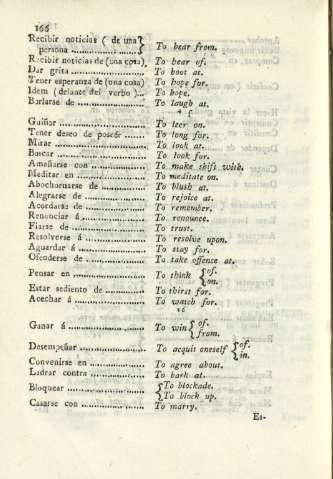 166
Recibir noticias ( de una } To hear from.
persona ..................
Recibir noticias de (una cosa). To hear of.
Dar grita .................. To hoot at.
Tener esperanza de (una cosa) To hope for.
Idem ( delante del verbo )... To hope.
Burlarse de .................. To laugh at.
Guiñar .................. To leer on.
Tener deseo de poseér ....... To long for.
Mirar .................. To look at.
Buscar .................. To look for.
Amañarse con .............. To make shift with.
Meditar en .................. To meditate on.
Abochornarse de ............ To blush at.
Alegrarse de .................. To rejoice at.
Acordarse de .................. To remember.
Renunciar á .................. To renounce.
Fiarse de .................. To trust.
Resolverse á .................. To resolve upon.
Aguardar á .................. To stay for.
Ofenderse de .................. To take offence at.
Pensar en .................. To think { of. on.
Estar sediento de ............ To thirst for.
Acechar á .................. To watch for.
Ganar á .................. To win { of. from.
Desempeñar .................. To acquit oneself { of. in.
Convenirse en .................. To agree about.
Ladrar contra .................. To bark at.
Bloquear .................. { To blockade.
To block up.
Casarse con .................. To marry.
Es-